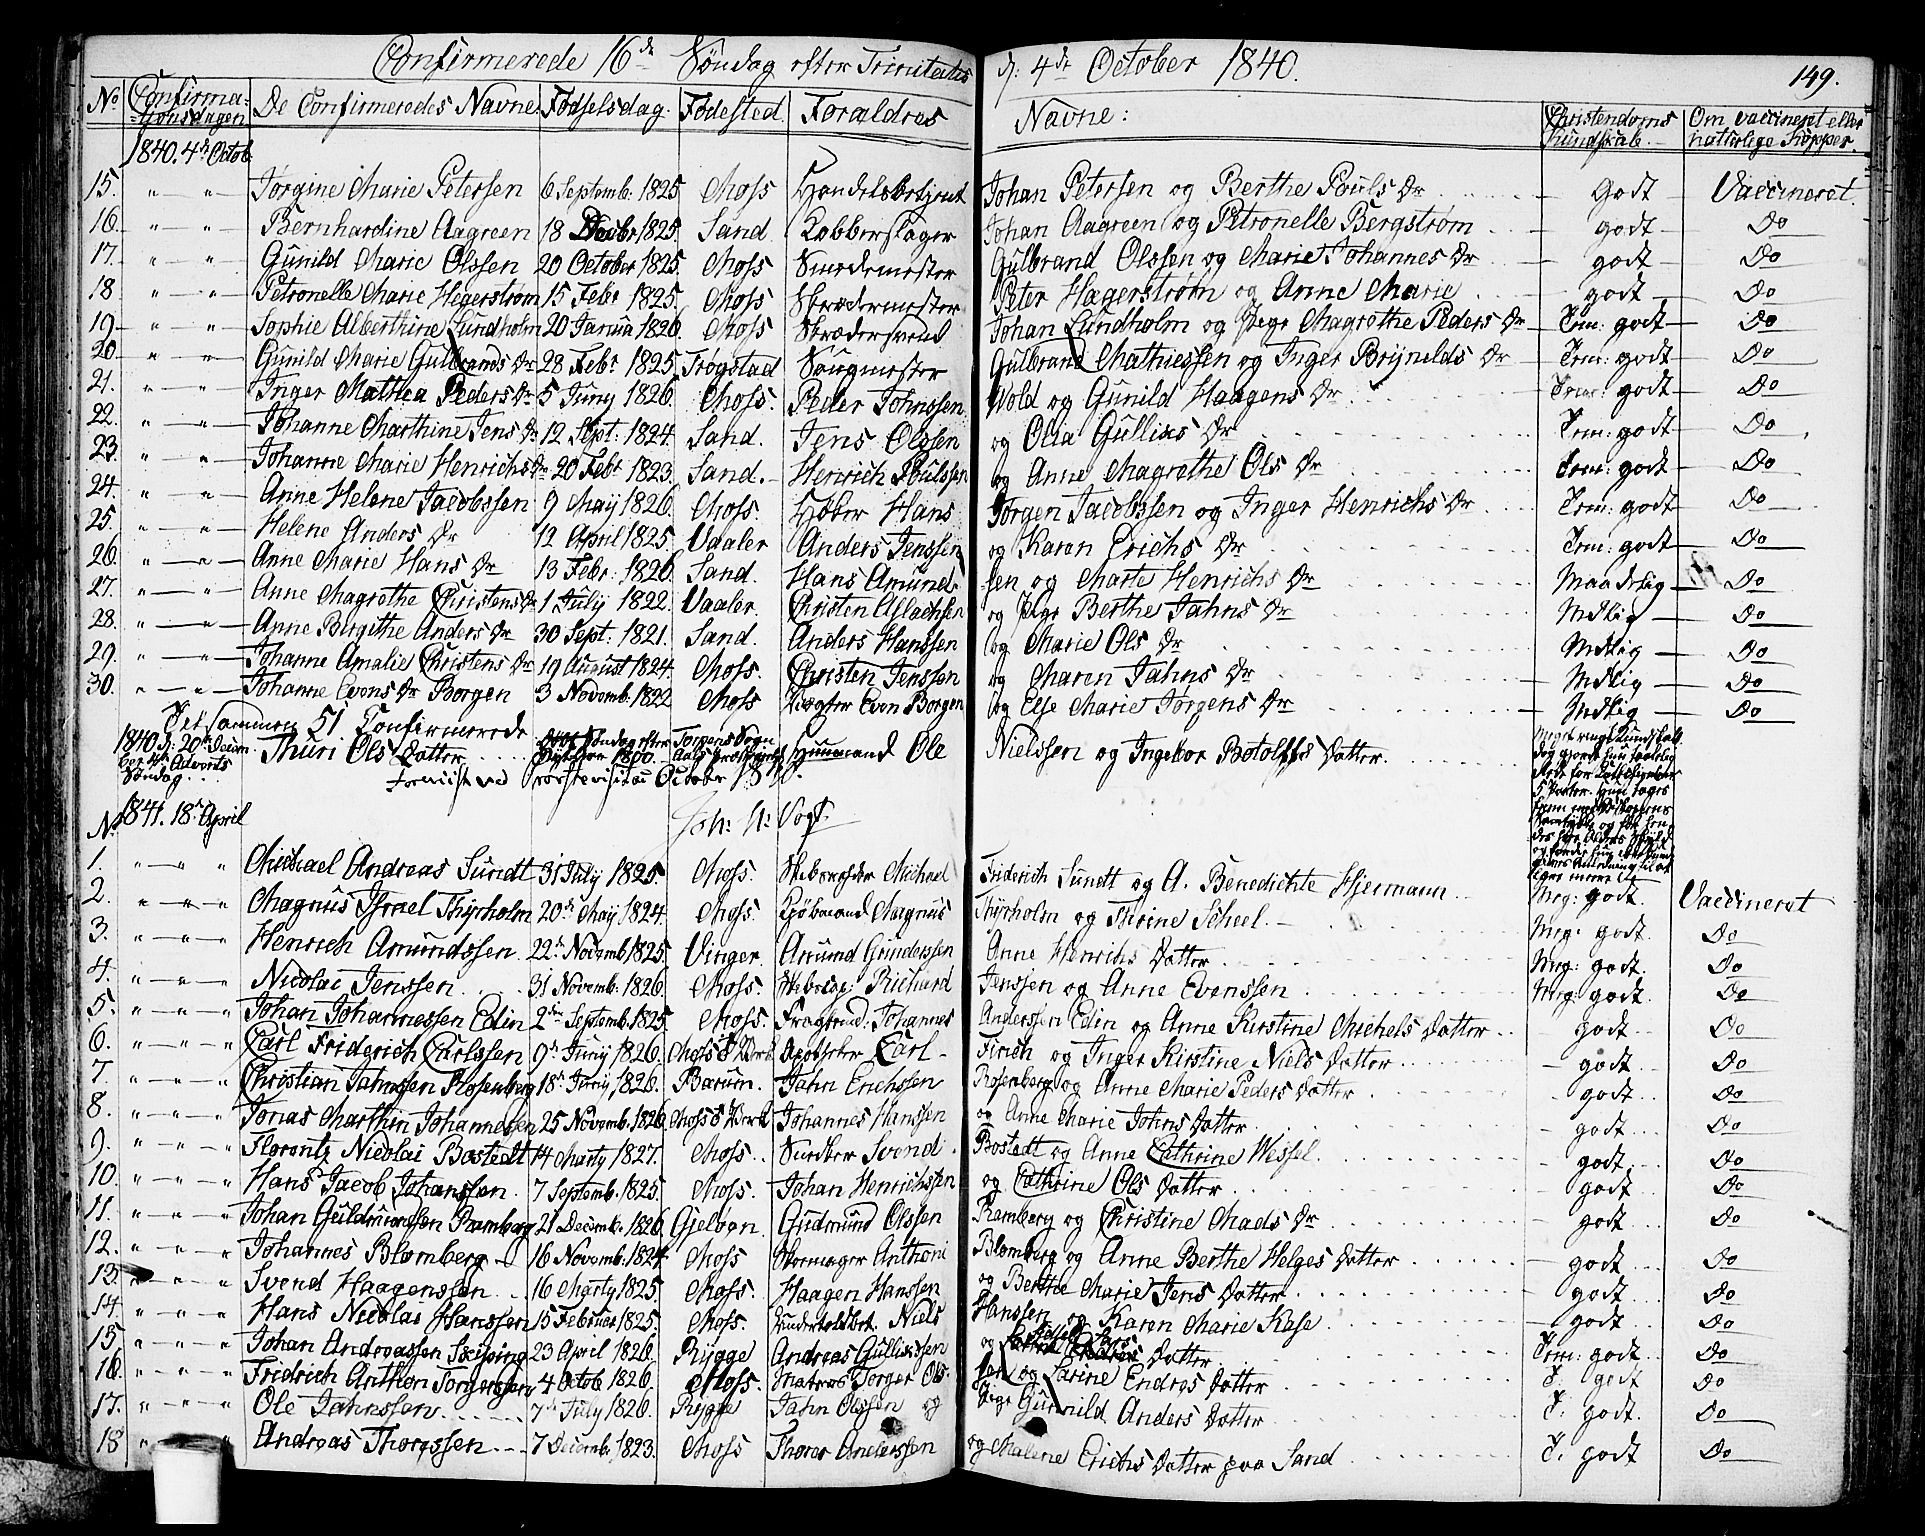 Confirmerede 16de Søndag efter Trinitatis d: 4de October 1840.
149.
No Confirma=tionsdagen De Confirmeredes Navne. Fødselsdag. Fødested Forældres Navne: Christendoms Kundskab. Om vaccineret eller naturlige Kopper.
1840. 4de Octob
15. " — " Jørgine Marie Petersen 6 Septemb. 1825 Moss Handelsbetjent Johan Petersen og Berthe Pouls Dr Godt Vaccineret.
16. " — " Bernhardine Aagreen 18 Decbr 1825. Sand Kobberslager Johan Aagreen og Petronelle Bergstrøm godt Do
17. " — " Gunild Marie Olssen 20 October 1825. Moss Smedemester Gulbrand Olssen og Marie Johannes Dr godt Do
18 " — " Petronelle Marie Hegerstrøm 15 Febr 1825. Moss Skrædermester Peter Hagerstrøm og Anne Marie godt Do
19 " — " Sophie Alberthine Lundholm 20 Janua 1826. Moss Skrædersvend Johan Lundholm og Pige Magrethe Peders Dr Tem: godt Do
20 " — " Gunild Marie Gulbrands Dr 28 Febr 1825 Trøgstad Saugmester Gulbrand Mathiessen og Inger Brynelds Dr Tem: godt Do
21. " — " Inger Mathea Peders Dr 5 Juny 1826. Moss. Peder Johnssen Wold og Gunild Haagens Dr Tem: godt Do
22. " — " Johanne Marthine Jens Dr 12 Sept: 1824. Sand. Jens Olssen og Olia Gullixs Dr Tem: godt Do
23. " — " Johanne Marie Henrichs Dr 20 Febr 1823. Sand. Henrich Poulssen og Anne Magrethe Ols Dr Tem: godt Do
24. " — " Anne Helene Jacobssen 9 May 1826. Moss. Høker Hans Jørgen Jacobssen og Inger Henrichs Dr Tem: godt Do
25. " — " Helene Anders Dr 12 April 1825. Vaaler Anders Jenssen og Karen Erichs Dr Tem: godt Do
26. " — " Anne Marie Hans Dr 13 Febr: 1826. Sand. Hans Amundsen og Marte Henrichs Dr Maadelig Do
27. " — " Anne Magrethe Christens Dr 1 July 1822. Vaaler. Christen Aslachsen og Pige Berthe Jahns Dr Mdlig Do
28. " — " Anne Birgithe Anders Dr 30 Sept: 1821. Sand. Anders Hanssen og Marie Ols Dr Mdlig Do
29. " — " Johanne Amalie Christens Dr 19 August 1824. Moss. Christen Jenssen og Maren Jahns Dr Mdlig Do
30. " — " Johanne Evens Dr Borgen 3 Novemb. 1822 Moss Vægter Even Borgen og Else Marie Jørgens Dr Mdlig Do
Tilsammen 51 Confirmerede
1840 d: 20de Decem=ber 4de Advents Søndag Thuri Ols Datter Søndag efter 1800. Huusmand Ole Nielssen og Ingebor Botolfs Datter.
October
Joh: N: Vogt.
No 1841. 18de April
1. " — " Michael Andreas Sundt 31 July 1825. Moss. Skibsreder Michael Friderich Sundt og A. Benedichte Hjermann Meg: godt. Vaccineret
2. " — " Magnus Israel Thyrholm 20de May 1824. Moss. Kjøbmand Magnus Thyrholm og Thrine Scheel. Meg: godt. Do
3. " — " Henrich Amundssen 22de Novemb 1825. Vinger. Amund Gundersen Anne Henrichs Datter Meg: godt. Do
4. " — " Nicolai Jenssen 31 Novemb. 1826. Moss. Richard Jenssen og Anne Evenssen Meg: godt. Do
5. " — " Johan Johannessen Edin 2den Septemb. 1825. Moss. Johannes Anderssen Edin og Anne Kirstine Michels Datter godt Do
6. " — " Carl Friderich Carlssen 9de Juny 1826. Moss Værk Apotheker Carl Firich og Inger Kirstine Niels Datter godt. Do
7. " — " Christian Jahnssen Rosenberg 18de Juny 1826. Barum. Jahn Erichssen Rosenberg og Anne Marie Peders Datter godt Do
8. " — " Jonas Marthin Johannessen 25 Novemb. 1826 Moss Værk Johannes Hanssen og Anne Marie Johns Datter godt Do
9. " — " Florentz Nicolai Bostedt 14 Marty 1827. Moss. Snedker Svend Bostedt og Anne Cathrine Wessel godt. Do
10. " — " Hans Jacob Johanssen. 7 Septemb. 1825. Moss. Johan Henrichssen og Cathrine Ols Datter godt Do
11. " — " Johan Guldmundssen Ramberg 21 Decemb. 1826 Gjeløen Gudmund Olssen Ramberg og Christine Mads Dr godt Do
12. " — " Johannes Blomberg 16 Novemb. 1824. Moss Skomager Anthoni Blomberg og Anne Berthe Helges Datter godt Do
13. " — " Svend Haagenssen 16 Marty 1825. Moss. Haagen Hanssen og Berthe Marie Jens Datter godt. Do
14. " — " Hans Nicolai Hanssen 15 Februar 1825. Moss. Niels Hanssen og Karen Marie Kase godt Do
15. " — " Johan Andreassen Skiping 23 April 1826. Rygge Andreas Gullixssen og Lars Datter Tem: godt. Do
16. " — " Fridrich Anthon Torgerssen 4 Octob 1826. Moss. Matros Torger Olssen og Karine Endres Datter T: godt Do
17. " — " Ole Jahnssen 7de July 1826. Rygge Jahn Olssen og Pige Gunnild Anders Datter T: godt. Do
18 " — " Andreas Thoressen 7 Decemb. 1823. Moss Thores Anderssen og Malene Erichs Datter paa Sand T: godt Do